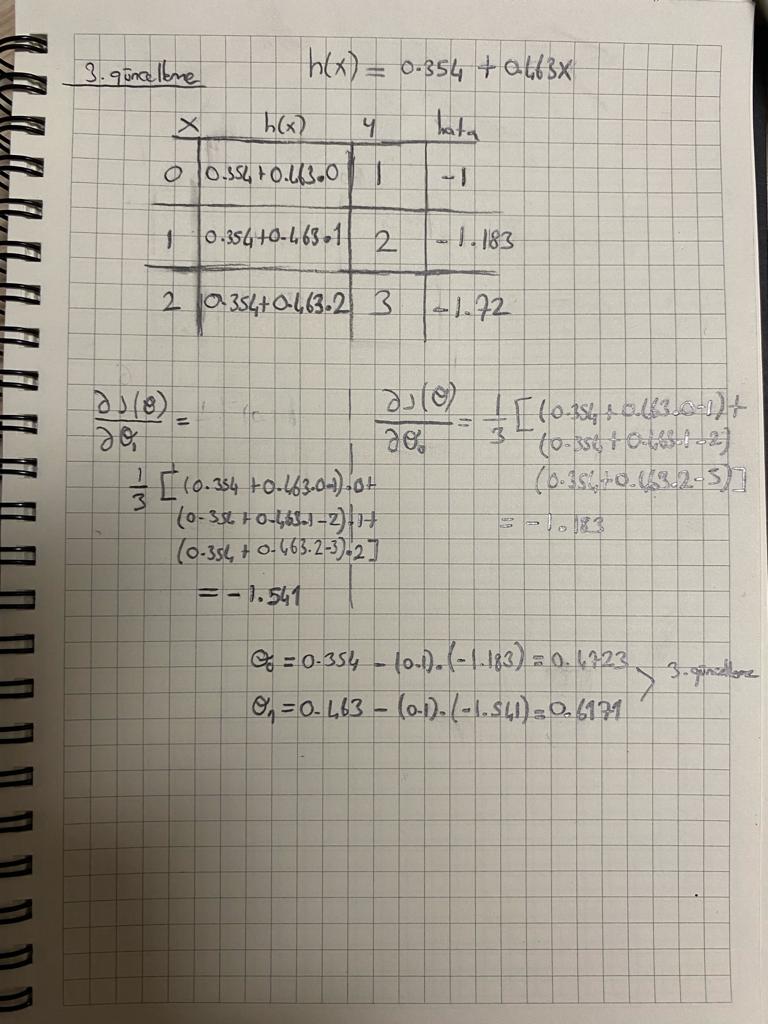 3. güncelleme
h(x) = 0.354 + 0.463x
x h(x) y hata
0 0.354+0.463.0 1 -1
1 0.354+0.463.1 2 -1.183
2 0.354+0.463.2 3 -1.72
∂J(θ)/∂θ₁ =
1/3 [(0.354+0.463.0-1).0+
(0.354+0.463.1-2).1+
(0.354+0.463.2-3).2]
= -1.541
∂J(θ)/∂θ₀ = 1/3 [(0.354+0.463.0-1)+
(0.354+0.463.1-2)
(0.354+0.463.2-3)]
= -1.183
θ₀ = 0.354 - (0.1).(-1.183) = 0.4723
θ₁ = 0.463 - (0.1).(-1.541) = 0.6171
3. güncelleme